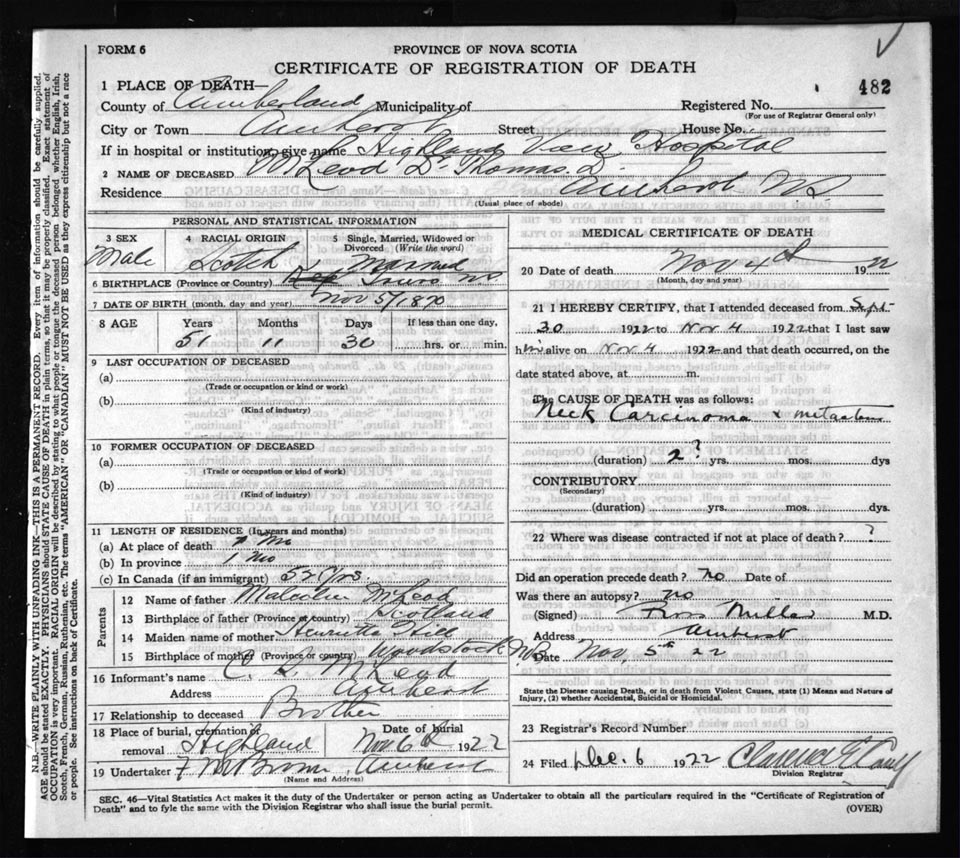 FORM 6
PROVINCE OF NOVA SCOTIA
CERTIFICATE OF REGISTRATION OF DEATH
482
1 PLACE OF DEATH—
County of Cumberland Municipality of
Registered No.
(For use of Registrar General only)
City or Town Amherst Street House No.
If in hospital or institution, give name Highland View Hospital
2 NAME OF DECEASED McLeod Dr Thomas
Residence Amherst NS
(Usual place of abode)
PERSONAL AND STATISTICAL INFORMATION
3 SEX
Male
4 RACIAL ORIGIN
Scotch
5 Single, Married, Widowed or
Divorced (Write the word)
Married
6 BIRTHPLACE (Province or Country) Truro NS
7 DATE OF BIRTH (month, day and year) Nov 5/1870
8 AGE
Years Months Days
If less than one day,
51 11 30
hrs. or min.
9 LAST OCCUPATION OF DECEASED
(a)
(Trade or occupation or kind of work)
(b)
(Kind of industry)
10 FORMER OCCUPATION OF DECEASED
(a)
(Trade or occupation or kind of work)
(b)
(Kind of industry)
11 LENGTH OF RESIDENCE (In years and months)
(a) At place of death Mo
(b) In province 1 Mo
(c) In Canada (if an immigrant) yrs.
Parents
12 Name of father Malcolm McLeod
13 Birthplace of father (Province or country) Scotland
14 Maiden name of mother Henrietta Hill
15 Birthplace of mother (Province or country) Woodstock NB
16 Informant's name C. L. McLeod
Address Amherst
17 Relationship to deceased Brother
18 Place of burial, cremation or
removal Highland
Date of burial
Nov 6th 1922
19 Undertaker F McBrown Amherst
(Name and Address)
MEDICAL CERTIFICATE OF DEATH
20 Date of death Nov 4th 1922
(Month, day and year)
21 I HEREBY CERTIFY, that I attended deceased from Sept
30 1922 to Nov 4 1922 that I last saw
him alive on Nov 4 1922 and that death occurred, on the
date stated above, at m.
The CAUSE OF DEATH was as follows:
Neck Carcinoma & metastases
(duration) 2? yrs. mos. dys
CONTRIBUTORY
(Secondary)
(duration) yrs. mos. dys.
22 Where was disease contracted if not at place of death? ?
Did an operation precede death? no Date of
Was there an autopsy? no
(Signed) Ross Millar M.D.
Address Amherst
Date Nov, 5th 22
State the Disease causing Death, or in death from Violent Causes, state (1) Means and Nature of
Injury, (2) whether Accidental, Suicidal or Homicidal.
23 Registrar's Record Number
24 Filed Dec. 6 1922 Clarence E
Division Registrar
SEC. 46—Vital Statistics Act makes it the duty of the Undertaker or person acting as Undertaker to obtain all the particulars required in the "Certificate of Registration of
Death" and to fyle the same with the Division Registrar who shall issue the burial permit.
(OVER)
N.B.—WRITE PLAINLY WITH UNFADING INK—THIS IS A PERMANENT RECORD. Every item of information should be carefully supplied.
AGE should be stated EXACTLY. PHYSICIANS should STATE CAUSE OF DEATH in plain terms, so that it may be properly classified. Exact statement of
OCCUPATION is very important. RACIAL ORIGIN will be described by stating to what people or tongue the deceased person belonged whether English, Irish,
Scotch, French, German, Russian, Ruthenian, etc. The terms "AMERICAN" OR "CANADIAN" MUST NOT BE USED as they express citizenship but not a race
or people. See instructions on back of Certificate.